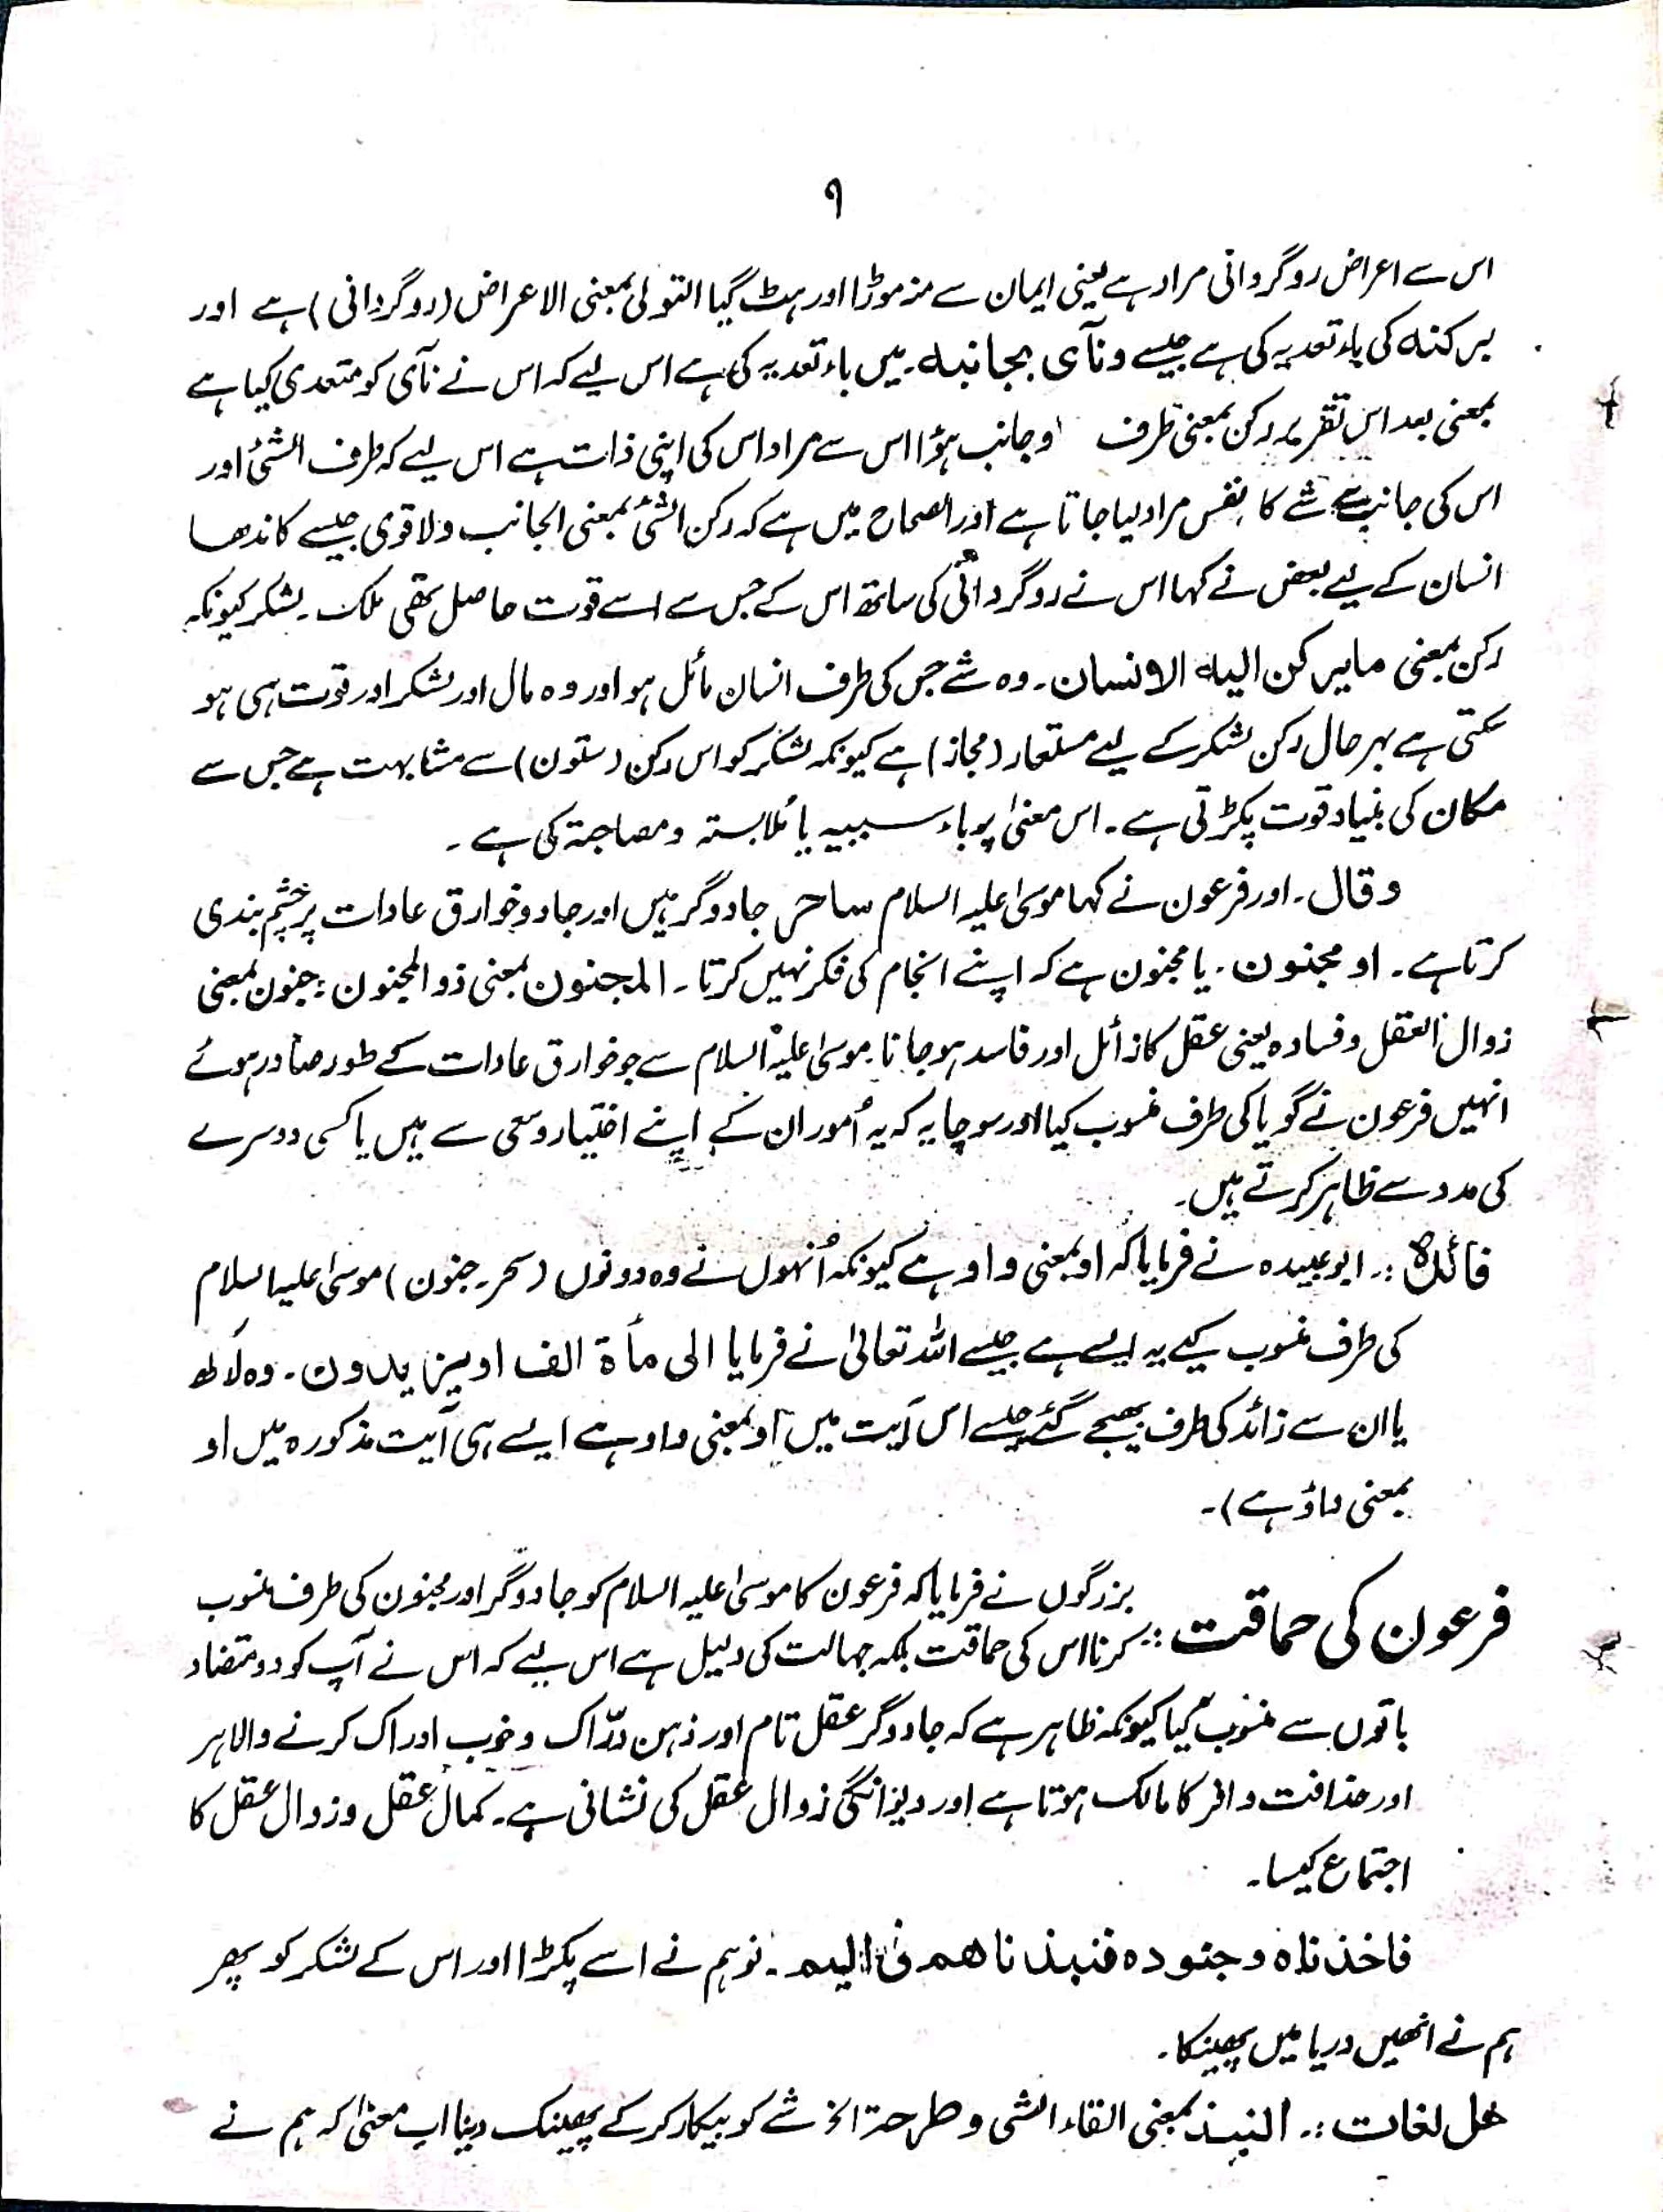 ۹
اس سے اعراض روگردانی مراد ہے یعنی ایمان سے منہ موڑا اور ہٹ گیا التولی بمعنی الاعراض (روگردانی) ہے اور
برکنہ کی باء تعدیہ کی ہے جیسے ونآی بجانبہ۔ میں باء تعدیہ کی ہے اس لیے کہ اس نے نآی کو متعدی کیا ہے
بمعنی بعد اس تقریر پر رکن بمعنی طرف او جانب ہؤا اس سے مراد اس کی اپنی ذات ہے اس لیے کہ طرف الشئ اور
اس کی جانب سے شے کا نفس مراد لیا جاتا ہے اور الصحاح میں ہے کہ رکن الشئ بمعنی الجانب ولاقوی جیسے کاندھا
انسان کے لیے بعض نے کہا اس نے روگردانی کی ساتھ اس کے جس سے اسے قوت حاصل تھی ملک۔ لشکر کیونکہ
رکن بمعنی مایرکن الیہ الانسان۔ وہ شے جس کی طرف انسان مائل ہو اور وہ مال اور لشکر اور قوت ہی ہو
سکتی ہے بہر حال رکن لشکر کے لیے مستعار (مجاز) ہے کیونکہ لشکر کو اس رکن (ستون) سے مشابہت ہے جس سے
مکان کی بنیاد قوت پکڑتی ہے۔ اس معنیٰ پر باء سببیہ یا مُلابستہ ومصاجتہ کی ہے۔
وقال۔ اور فرعون نے کہا موسیٰ علیہ السلام ساحر جادوگر ہیں اور جادو خوارق عادات پر چشم بندی
کرتا ہے۔ او مجنون۔ یا مجنون ہے کہ اپنے انجام کی فکر نہیں کرتا۔ المجنون بمعنی ذو المجنون: جنون بمعنی
زوال العقل وفسادہ یعنی عقل کا زائل اور فاسد ہو جانا۔ موسیٰ علیہ السلام سے جو خوارق عادات کے طور صادر ہوئے
انہیں فرعون نے گویا کی طرف منسوب کیا اور سوچا یہ کہ یہ اُمور ان کے اپنے اختیار وسعی سے ہیں یا کسی دوسرے
کی مدد سے ظاہر کرتے ہیں۔
فائدہ :۔ ابوعبیدہ نے فرمایا کہ او بمعنی واو ہے کیونکہ اُنہوں نے وہ دونوں (سحر۔ جنون) موسیٰ علیہ السلام
کی طرف منسوب کیے یہ ایسے ہے جیسے اللہ تعالیٰ نے فرمایا الی مأۃ الف او یزیدون۔ وہ لاکھ
یا ان سے زائد کی طرف بھیجے گئے جیسے اس آیت میں او بمعنی واو ہے ایسے ہی آیت مذکورہ میں او
بمعنی واؤ ہے)۔
فرعون کی حماقت :: بزرگوں نے فرمایا کہ فرعون کا موسیٰ علیہ السلام کو جادوگر اور مجنون کی طرف منسوب
کرنا اس کی حماقت بلکہ جہالت کی دلیل ہے اس لیے کہ اس نے آپ کو دو متضاد
باتوں سے منسوب کیا کیونکہ ظاہر ہے کہ جادوگر عقل تام اور ذہن درّاک وخوب ادراک کرنے والا ہر
اور حذاقت وافر کا مالک ہوتا ہے اور دیوانگی زوال عقل کی نشانی ہے۔ کمال عقل وزوال عقل کا
اجتماع کیسا۔
فاخذناہ وجنودہ فنبذناھم فی الیم۔ تو ہم نے اسے پکڑا اور اس کے لشکر کو پھر
ہم نے انھیں دریا میں پھینکا۔
حل لغات :۔ النبذ بمعنی القاء الشی وطرحہ الخ شے کو بیکار کر کے پھینک دینا اب معنیٰ کہ ہم نے